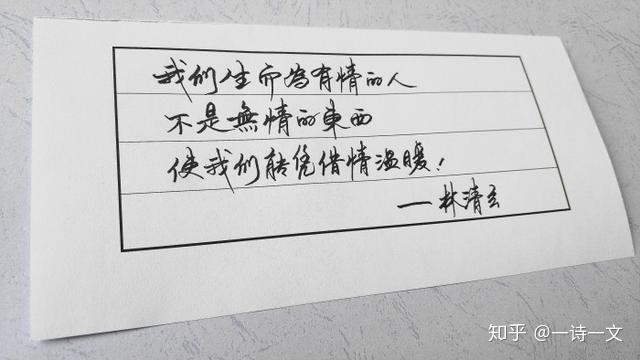 我们生而为有情的人
不是無情的東西
使我们能凭借情温暖！
——林清玄
知乎 @一诗一文